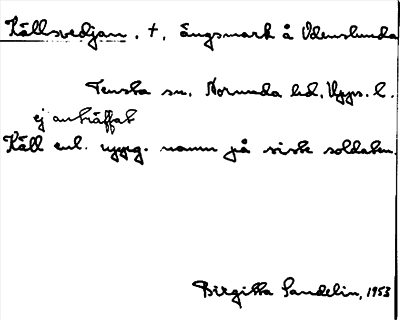 Källsvedjan, †, ängsmark å Odenslunda
Tensta sn, Norunda hd, Upps. l.
ej anträffat
Käll enl. uppg. namn på siste soldaten.
Birgitta Sandelin, 1953